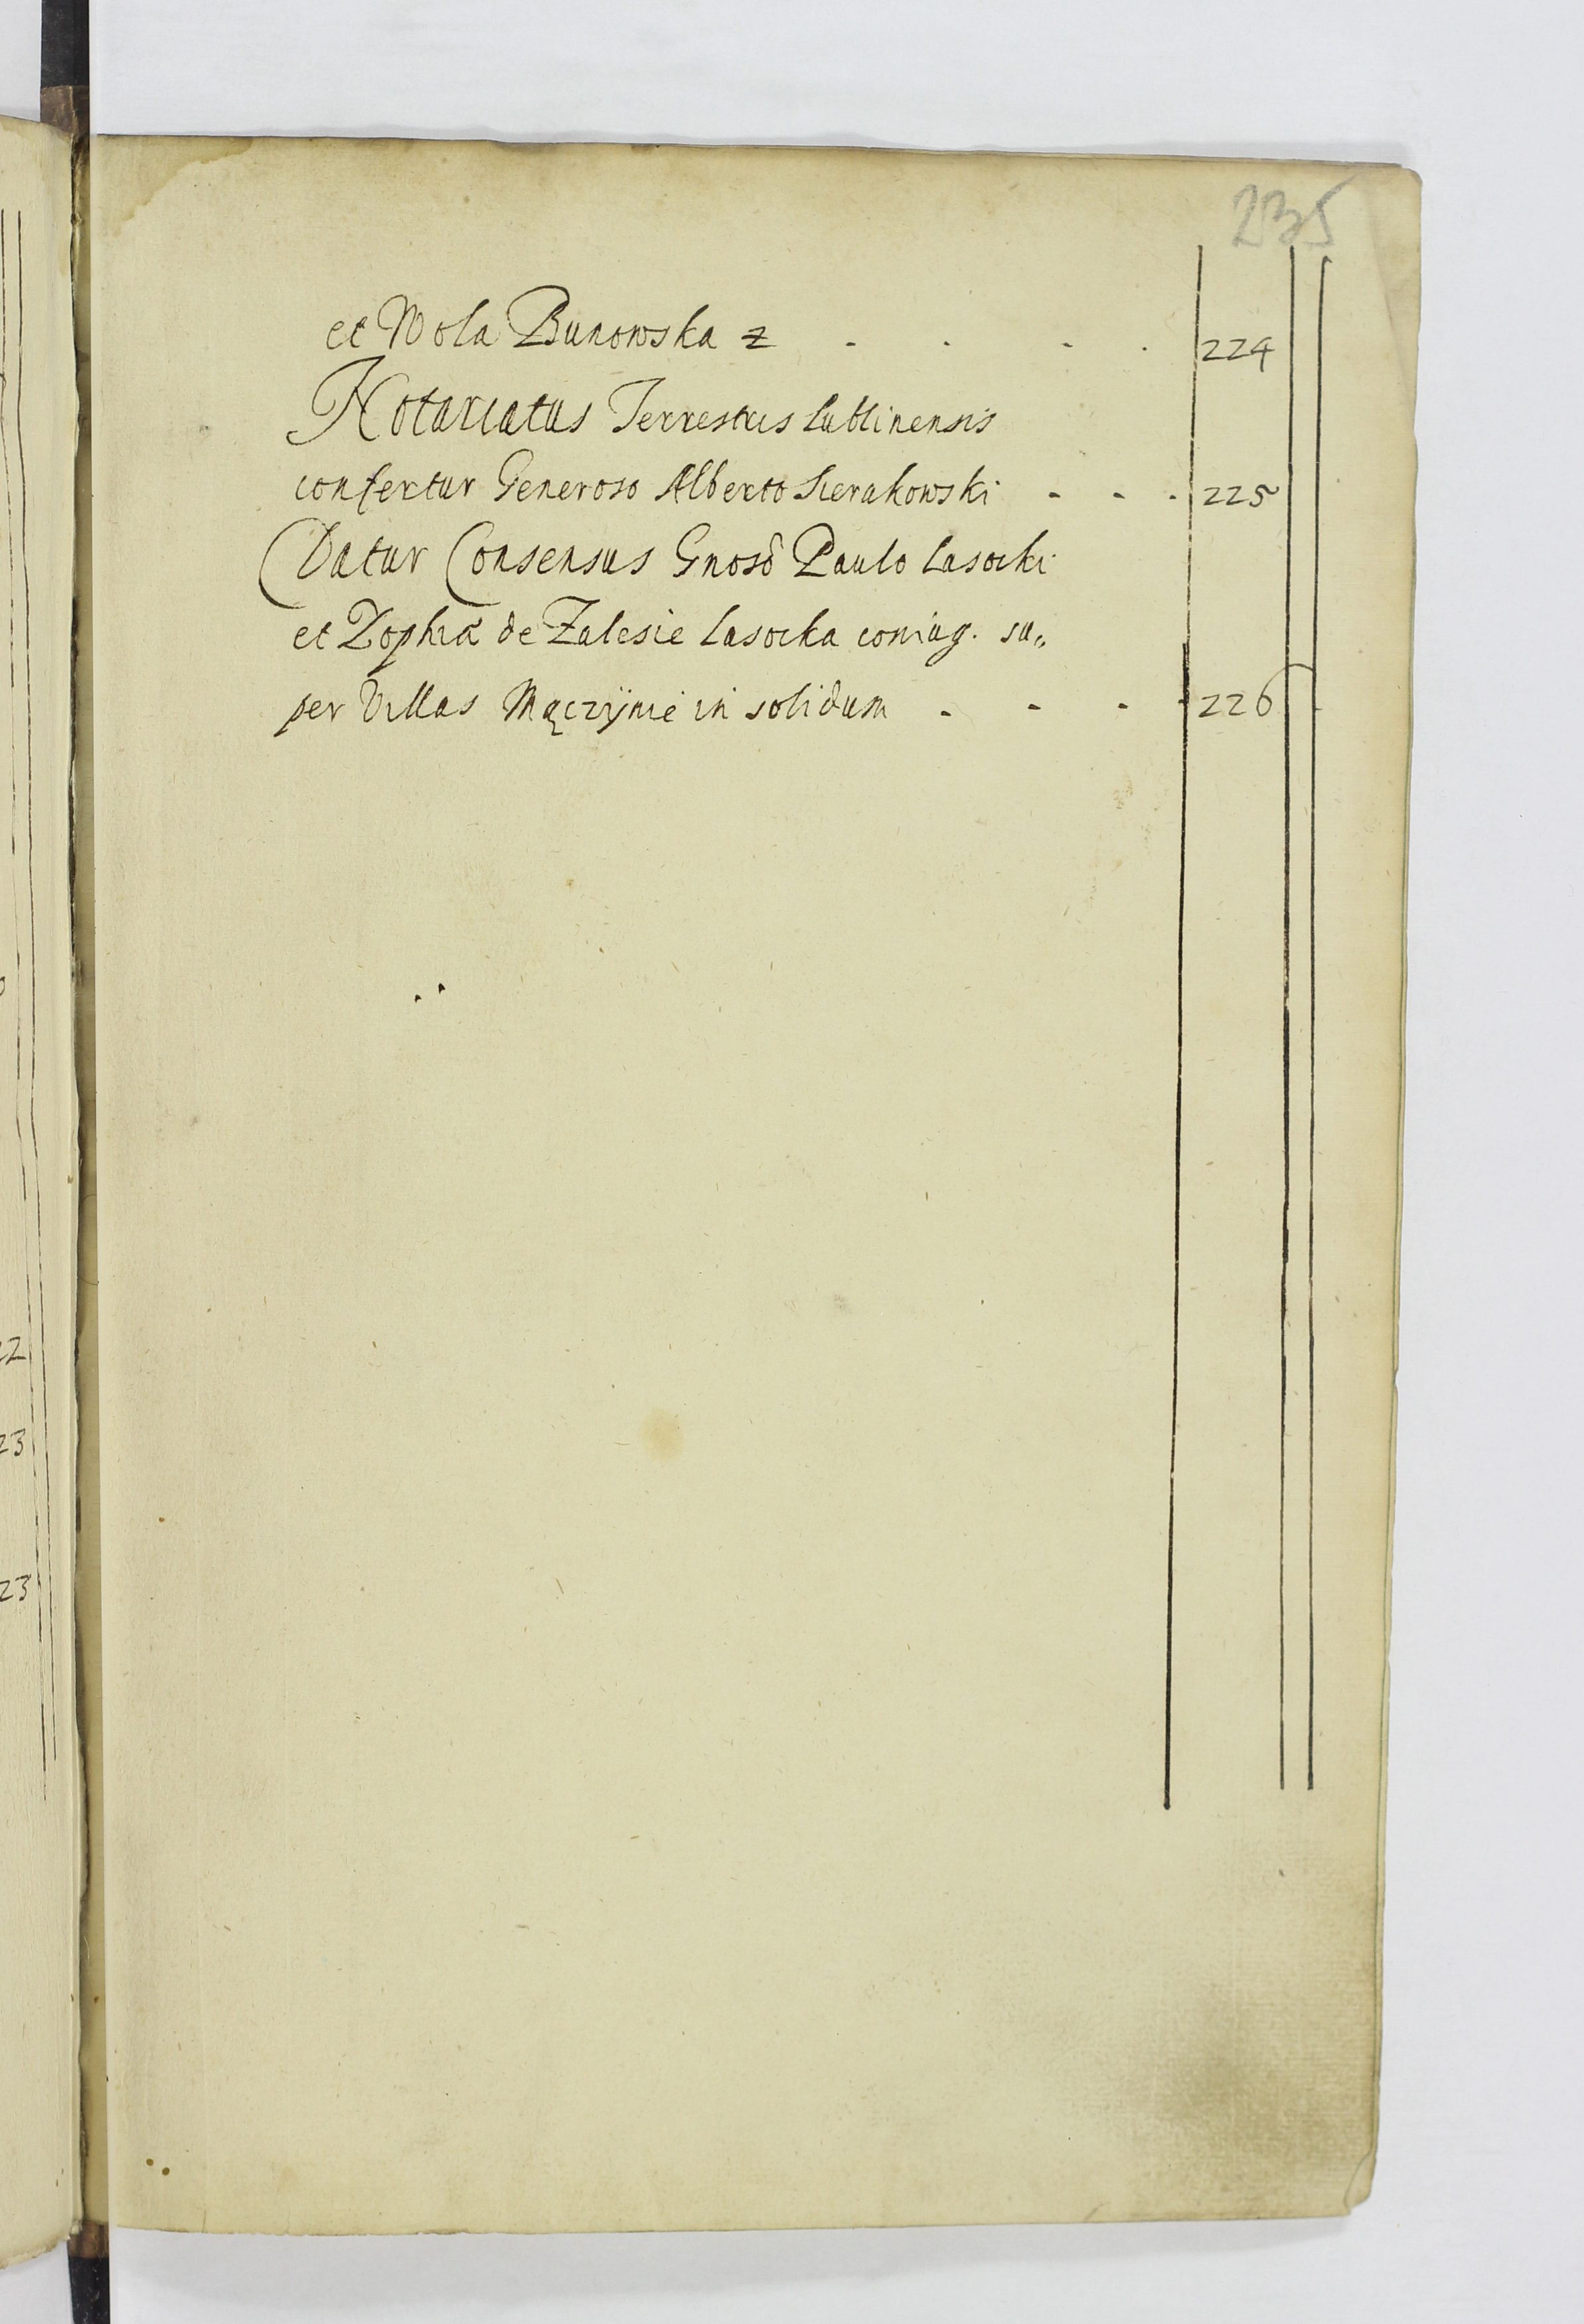 235
et Wola Bunowska z - - - - 224
Notariatus Terrestris Lublinensis
confertur Generoso Alberto Sierakowski - - - 225
Datur Consensus Gnosô Paulo Lasocki
et Zophiæ de Zalesie Lasocka coniug. su„
per Villas Mączÿnie in solidum - - - - 226
22
23
23